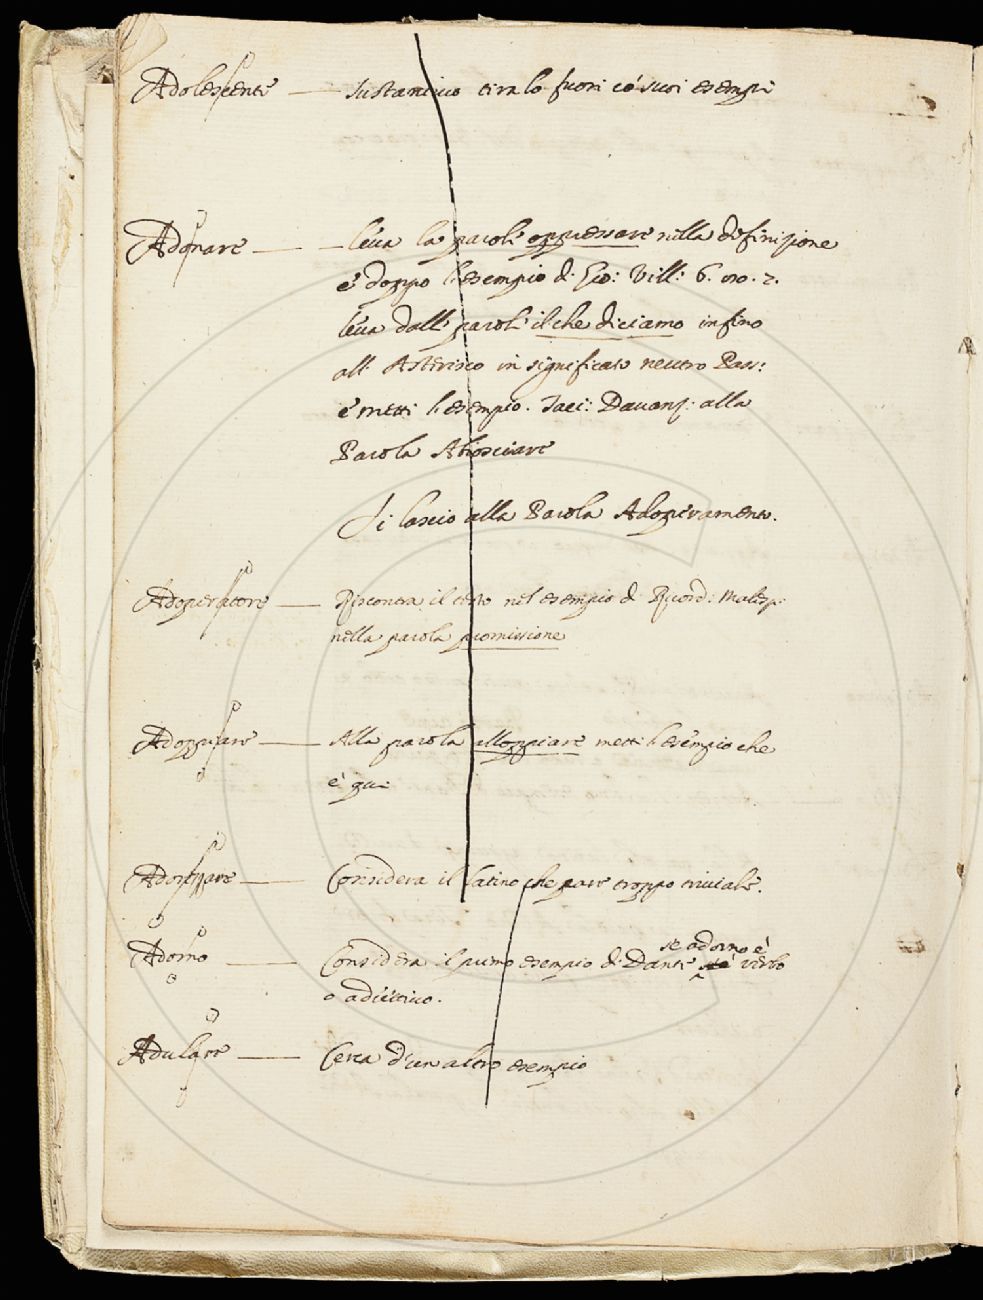 Adolescente — sustantivo tiralo fuori có suoi esempi
Adonare — — leva la parola oppressare nella definizione
e doppo l'esempio di Gio: Vill: 6.
leva dalle parole il che diciamo infino
all' Asterisco in significato neutro Pass:
e metti l'esempio. Tac: Davanz: alla
Parola Abiosciare
Si lascio alla Parola Adoperamento.
Adoperatore — Riscontra il testo nel esempio di Ricord: Malesp:
nella parola promissione
Adoppiare — Alla parola alloppiare metti l'esempio che
è qui
Adoreppare — Considera il latino che pare troppo triviale.
Adorno — Considera il primo esempio di Dante se adorno è verbo
o adiettivo.
Adulare — Cerca d'un altro esempio